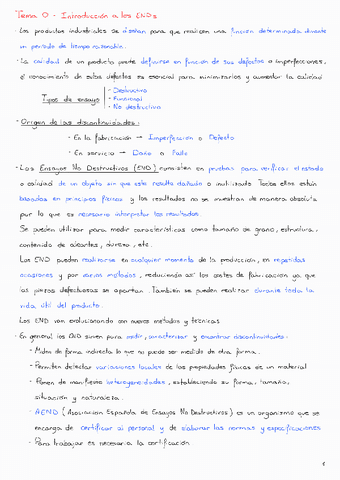 Tema 0 - Introducción a los ENDs
· Los productos industriales se diseñan para que realicen una función determinada durante
un periodo de tiempo razonable.
· La calidad de un producto puede definirse en función de sus defectos o imperfecciones,
el conocimiento de estos defectos es esencial para minimizarlos y aumentar la calidad
Tipos de ensayo
- Destructivo
- Funcional
- No destructivo
· Origen de las discontinuidades:
- En la fabricación → Imperfección o Defecto
- En servicio → Daño o Fallo
· Los Ensayos No Destructivos (END) consisten en pruebas para verificar el estado
o calidad de un objeto sin que este resulte dañado o inutilizado. Todos ellos están
basados en principios físicos y los resultados no se muestran de manera absoluta
por lo que es necesario interpretar los resultados.
Se pueden utilizar para medir características como tamaño de grano, estructura,
contenido de aleantes, dureza, etc.
Los END pueden realizarse en cualquier momento de la producción, en repetidas
ocasiones y por varios métodos, reduciendo así los costes de fabricación ya que
las piezas defectuosas se apartan. También se pueden realizar durante toda la
vida útil del producto.
Los END van evolucionando con nuevos métodos y técnicas
· En general los END sirven para medir, caracterizar y encontrar discontinuidades:
- Miden de forma indirecta lo que no puede ser medido de otra forma.
- Permiten detectar variaciones locales de las propiedades físicas de un material
- Ponen de manifiesto heterogeneidades, estableciendo su forma, tamaño,
situación y naturaleza.
- AEND (Asociación Española de Ensayos No Destructivos) es un organismo que se
encarga de certificar al personal y de elaborar las normas y especificaciones
- Para trabajar es necesaria la certificación